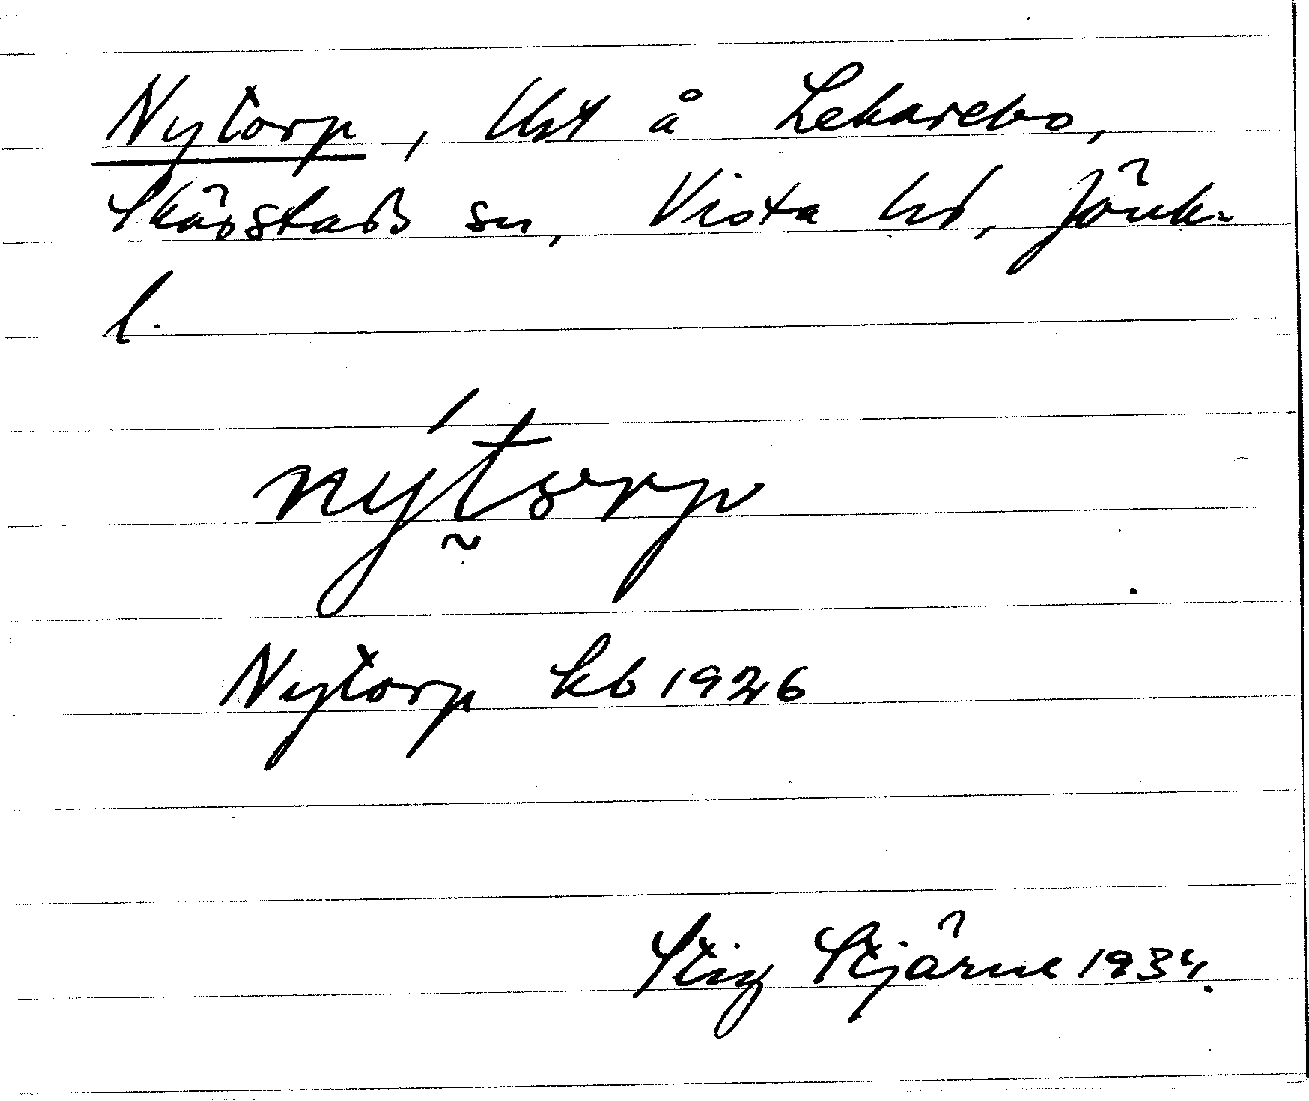 Nytorp, lht å Lekarebo,
Skärstads sn, Vista hd, Jönk.
l.
nýtorp
Nytorp kb 1926
Stig Stjärne 1934.